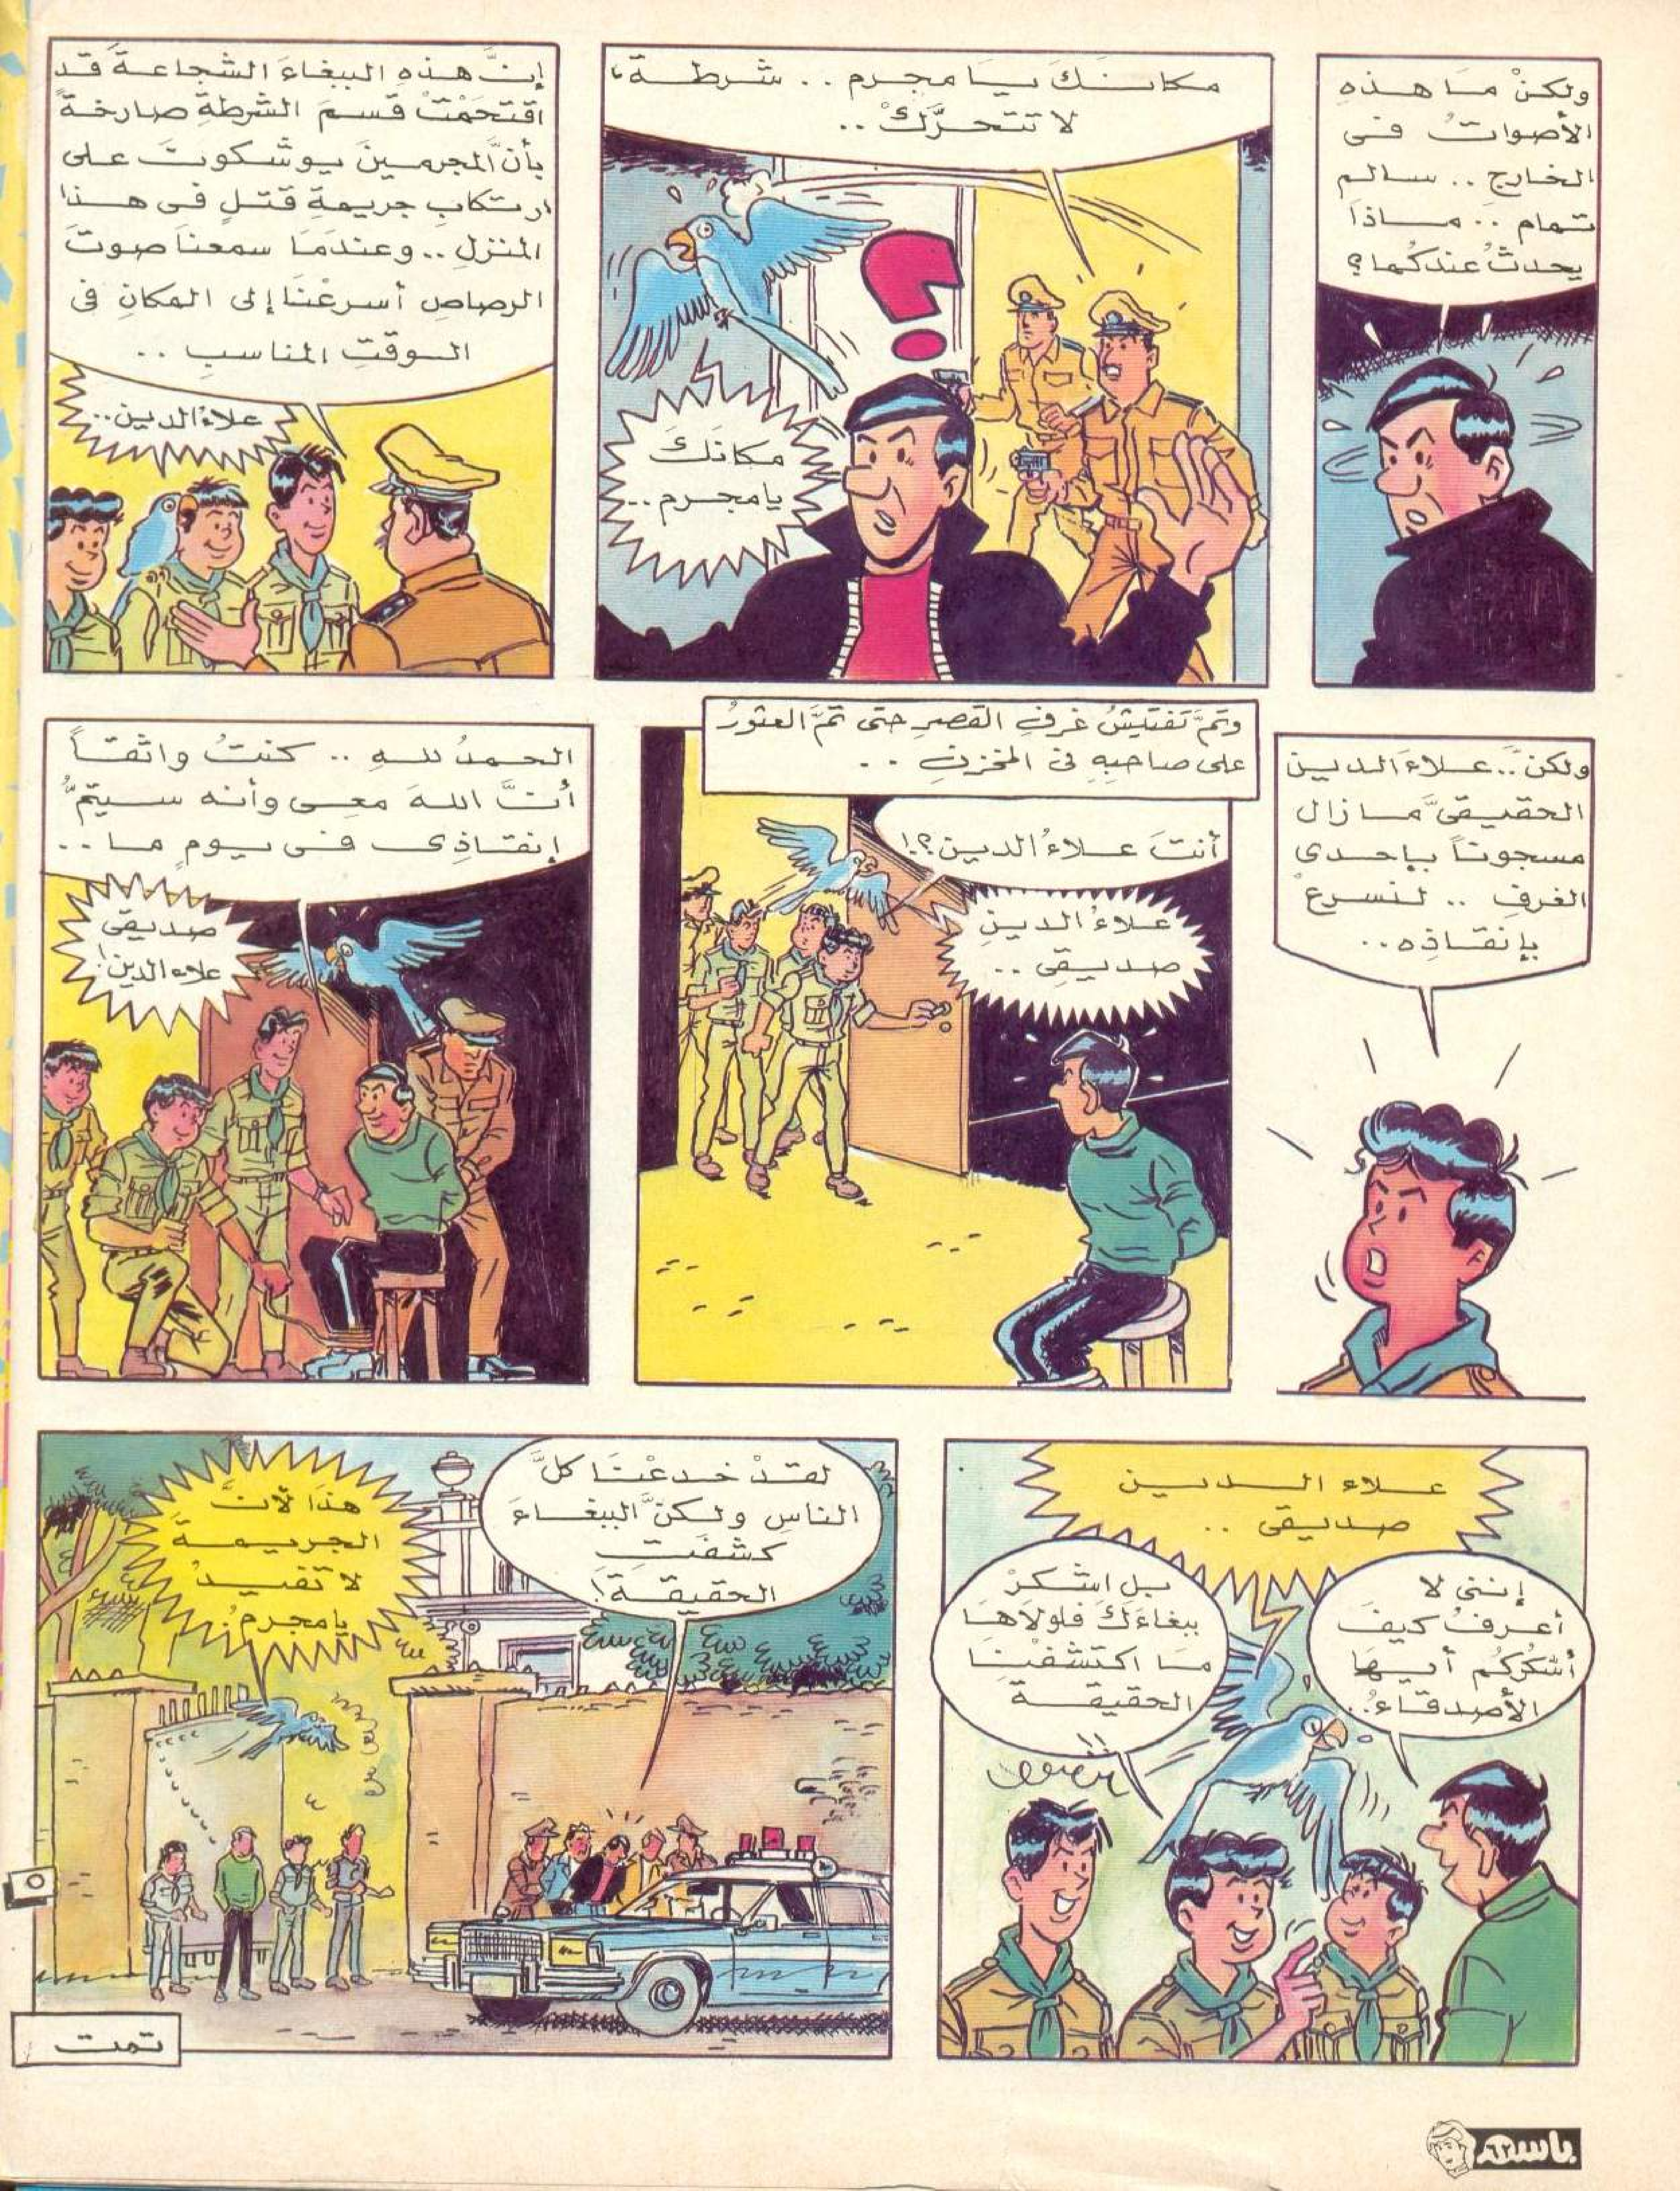 ولكنْ مَا هذهِ
الأصواتُ فى
الخارج .. سالم
تمام .. مَاذَا
يحدثُ عندكُما؟
مكانَكَ يَا مجرم .. شرطة،
لا تتحرَّكْ ..
مكانَكَ
يامجرم ..
إنَّ هذهِ الببغاءَ الشجاعةَ قَد
اقتحَمَتْ قسمَ الشرطةِ صارخةً
بأنَّ المجرمينَ يوشكونَ على
ارتكابِ جريمةِ قتلٍ فى هذا
المنزلِ .. وعندمَا سمعنَا صوتَ
الرصاصِ أسرعْنَا إلى المكانِ فى
الوقتِ المناسبِ ..
علاءُ الدين ..
ولكنْ .. علاءَ الدين
الحقيقىَّ مَا زال
مسجونًا بإحدى
الغرفِ .. لنسرعْ
بإنقاذِه ..
وتمَّ تفتيشُ غرفِ القصرِ حتى تمَّ العثورُ
على صاحبِهِ فى المخزنِ ..
أنتَ علاءُ الدين؟!
علاءُ الدينِ
صديقى ..
الحمدُ للهِ .. كنتُ واثقًا
أنَّ اللهَ معى وأنه سيتمُّ
إنقاذِى فى يومٍ ما ..
صديقى
علاء الدين!
علاء الدين
صديقى ..
إننى لا
أعرفُ كيفَ
أشكرُكُم أيها
الأصدقاءُ ..
بل اشكرْ
ببغاءَكَ فلولاهَا
مَا اكتشفْنَا
الحقيقةَ
!!
لقدْ خدعْنَا كلَّ
الناسِ ولكنَّ الببغاءَ
كشفَتِ
الحقيقةَ!
هذَا لأنَّ
الجريمةَ
لا تفيدُ
يامجرمُ!
تمت
باسم